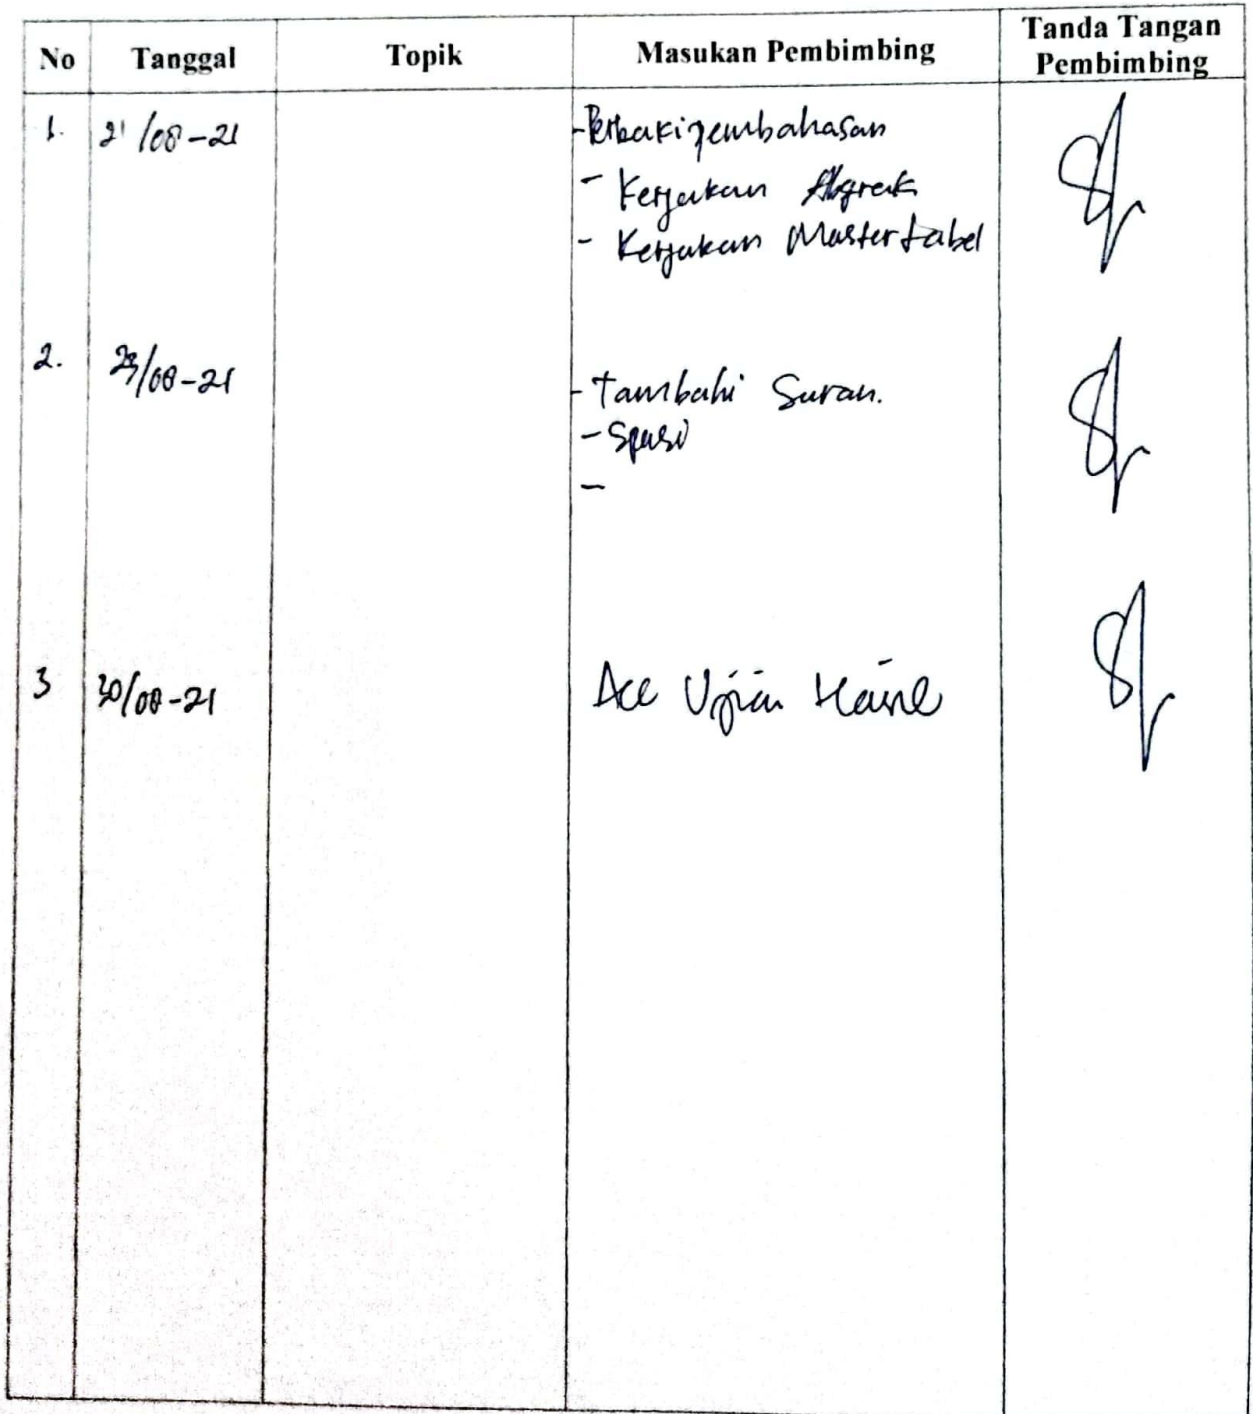 No Tanggal Topik Masukan Pembimbing Tanda Tangan Pembimbing
1. 21/08-21 -Perbaki pembahasan
- Kerjakan
- Kerjakan Mastertabel
2. 23/08-21 -Tambahi Saran.
-Spasi
-
3 30/08-21 Acc Ujian Hasil